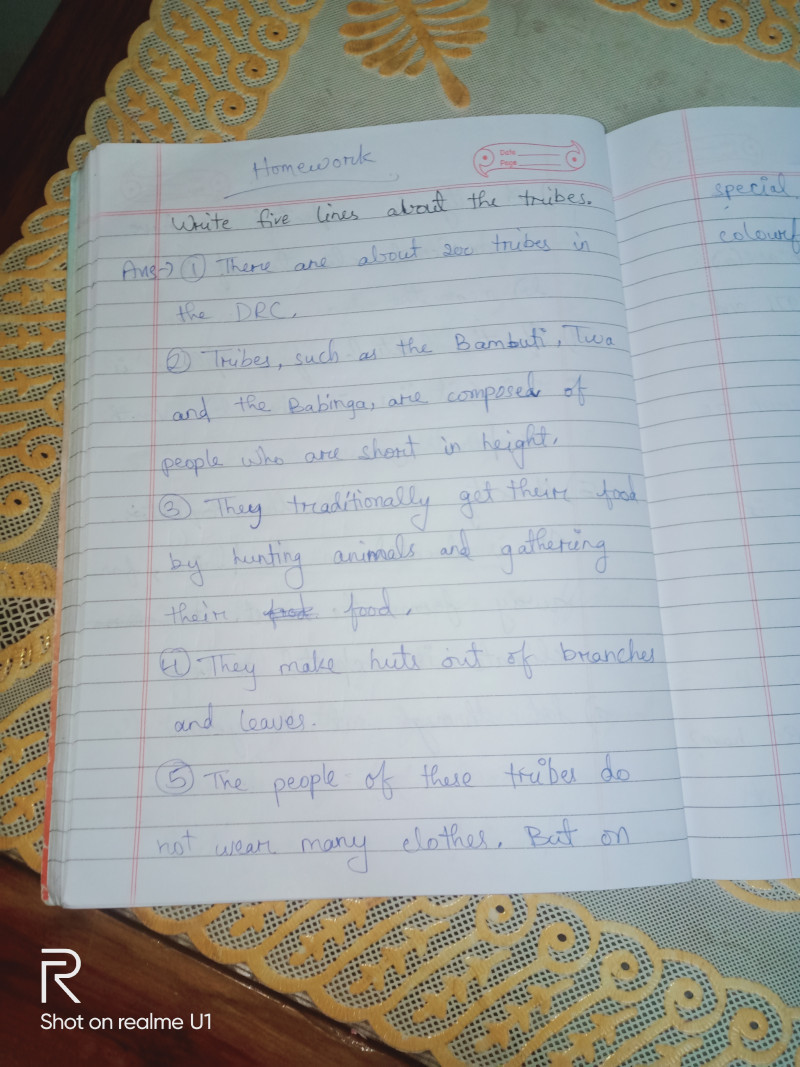 Homework
Date
Page
Write five lines about the tribes.
Ans→ ① There are about 200 tribes in
the DRC.
② Tribes, such as the Bambuti, Twa
and the Babinga, are composed of
people who are short in height.
③ They traditionally get their food
by hunting animals and gathering
their food.
④ They make huts out of branches
and leaves.
⑤ The people of these tribes do
not wear many clothes. But on
special
colourf
R
Shot on realme U1